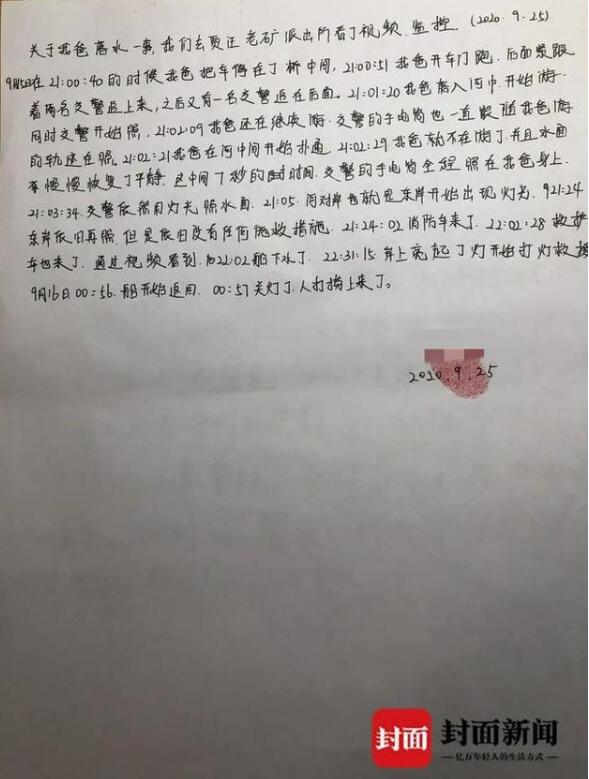 关于我爸落水一事,我们去贾汪老矿派出所看了视频监控.(2020.9.25)
9月15日在21:00:40的时候我爸把车停在了桥中间,21:00:51我爸开车门跑.后面紧跟
着两名交警追上来,之后又有一名交警追在后面。21:01:20我爸落入河中.开始游.
同时交警开始照,21:02:09我爸还在继续游.交警的手电筒也一直跟随我爸游
的轨迹在照。21:02:21我爸在河中间开始扑通.21:02:29我爸就不在游了.并且水面
慢慢恢复了平静.这中间7秒的时间.交警的手电筒全程照在我爸身上.
21:03:34.交警依然用灯光照水面.21:05.河对岸也就是东岸开始出现灯光.21:24
东岸依旧再照.但是依旧没有任何施救措施.21:24:02消防车来了.22:02:28救援
车也来了.通过视频看到.22:02船下水了.22:31:15岸上亮起了灯开始打灯救援
9月16日00:56.船开始返回.00:57关灯了.人打捞上来了。
2020.9.25
封面
封面新闻
亿万年轻人的生活方式